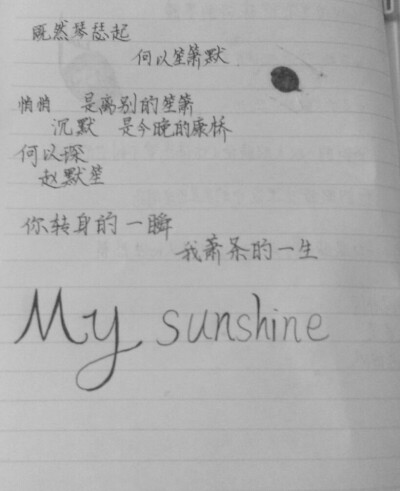 既然琴瑟起
何以笙箫默
悄悄 是离别的笙箫
沉默 是今晚的康桥
何以琛
赵默笙
你转身的一瞬
我萧条的一生
My sunshine